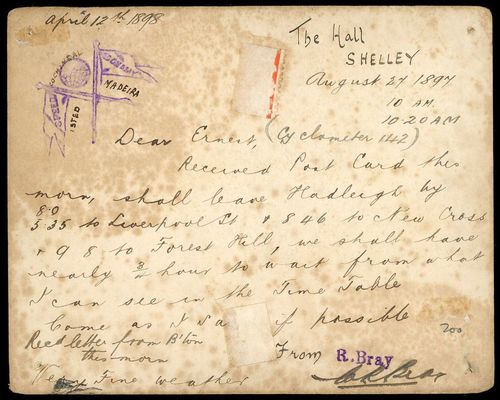 April 12th 1898
The Hall
SHELLEY
August 27 1897
10 AM.
10-20 AM
MADEIRA
Dear Ernest, (Cyclometer 1142)
Received Post Card this
morn, shall leave Hadleigh by
8.0
5.35 to Liverpool St & 8 46 to New Cross
& 9 8 to Forest Hill, we shall have
nearly 3/4 hour to wait from what
I can see in the Time Table
Come as if possible
Recd letter from B'ton
this morn
From R. Bray
Very Fine weather
Bray
200